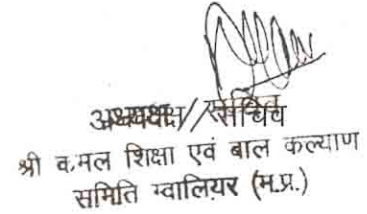 अध्यक्ष/सचिव
श्री कमल शिक्षा एवं बाल कल्याण
समिति ग्वालियर (म.प्र.)